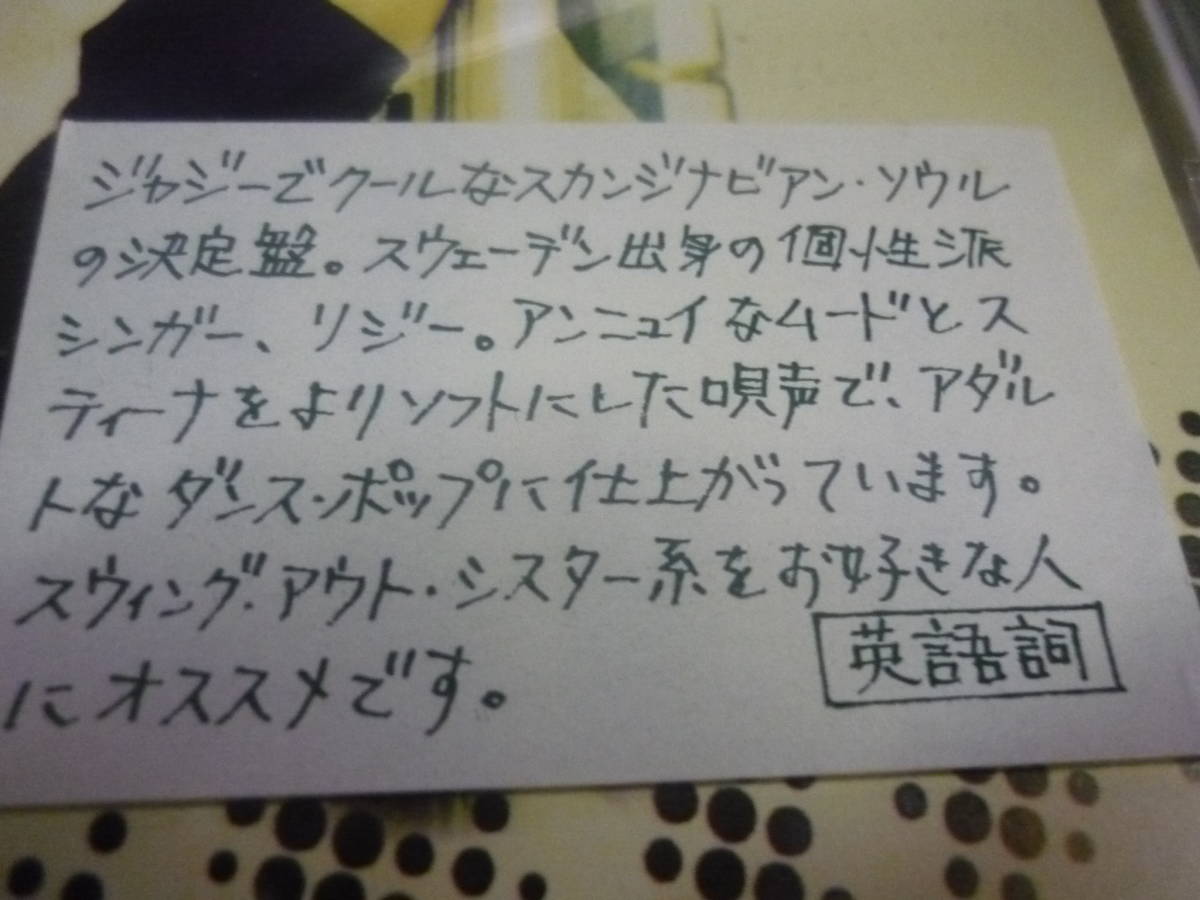 ジャジーでクールなスカンジナビアン・ソウル
の決定盤。スウェーデン出身の個性派
シンガー、リジー。アンニュイなムードとス
ティーナをよりソフトにした唄声で、アダル
トなダンス・ポップに仕上がっています。
スウィング・アウト・シスター系をお好きな人
にオススメです。
英語詞